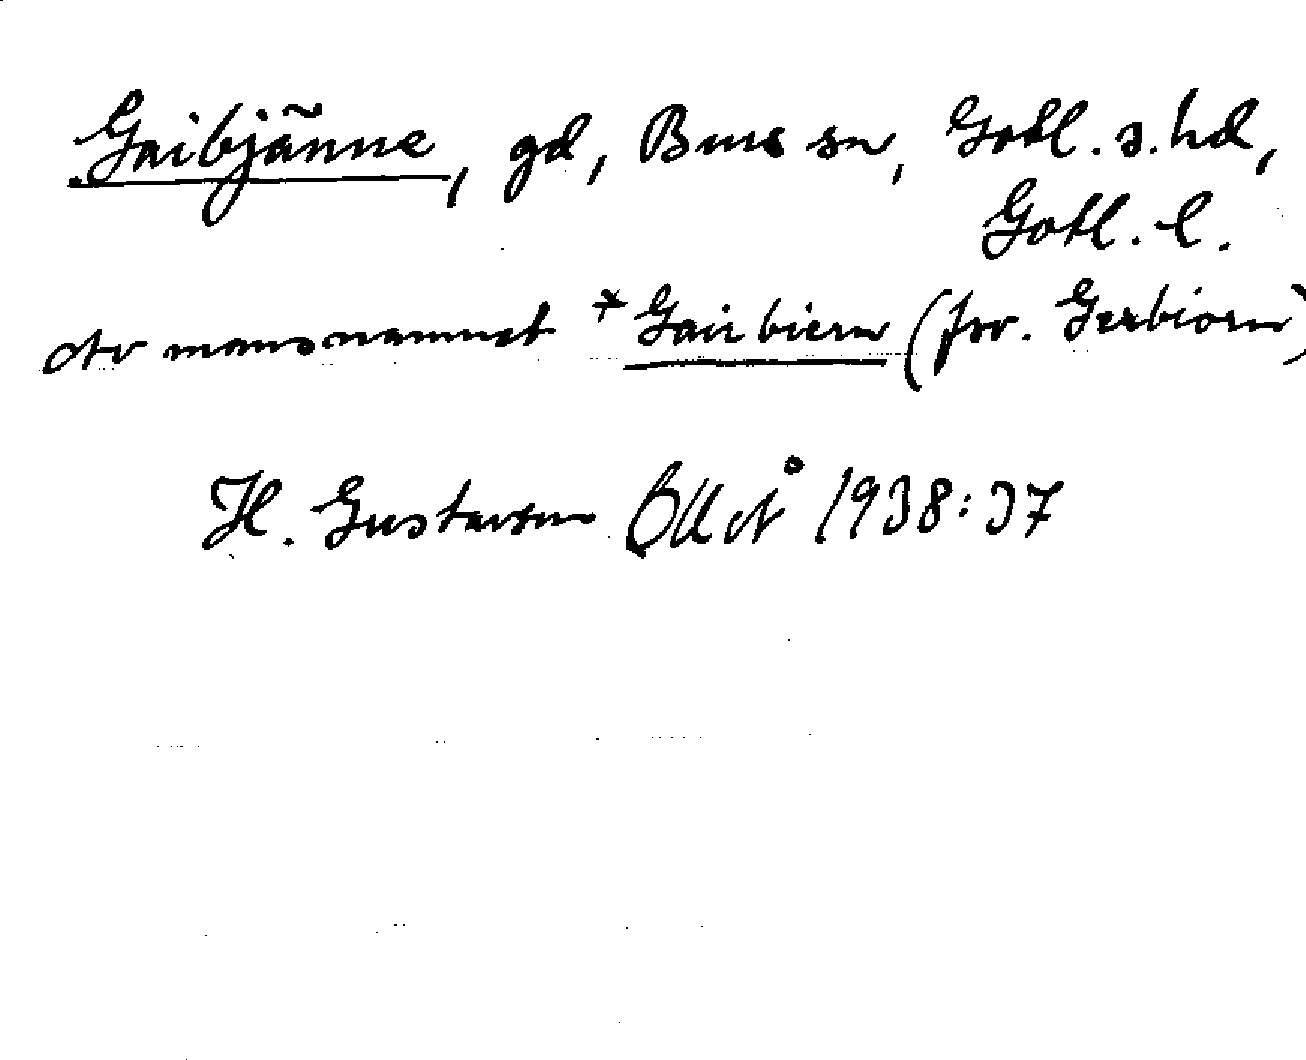 Gaibjänne, gd, Burs sn, Gotl. s. hd,
Gotl. l.
Av mansnamnet *Gairbiern (fsv. Gerbiorn)
H. Gustavson 1938:37